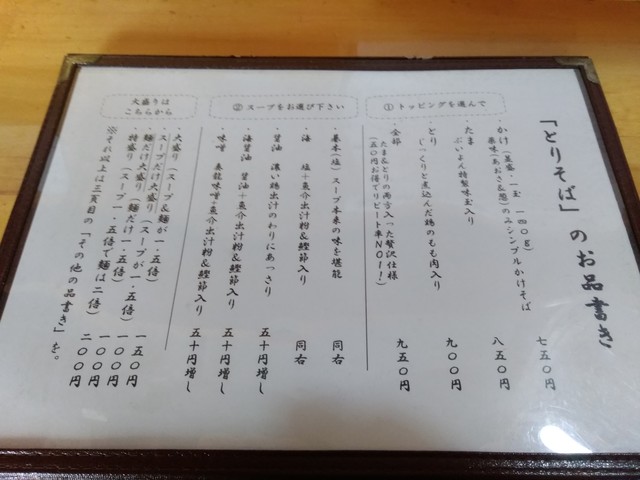 「とりそば」のお品書き
①トッピングを選んで
・かけ(並盛・一玉 一四〇g) 七五〇円
薬味(あおさ&葱)のみシンプルかけそば
・たま 八五〇円
ぷいよん特製味玉入り
・とり 九〇〇円
じっくりと煮込んだ鶏のもも肉入り
・全部 九五〇円
たま&とりの両方入った贅沢仕様
(五〇円お得でリピート率NO1!)
②スープをお選び下さい
・基本(塩)スープ本来の味を堪能
・海 塩+魚介出汁粉&鰹節入り 同右
・醤油 濃い鶏出汁のわりにあっさり 五十円増し
・海醤油 醤油+魚介出汁粉&鰹節入り 五十円増し
・味噌 赤龍味噌+魚介出汁粉&鰹節入り 五十円増し
大盛りは
こちらから
・大盛り(スープ&麺が一・五倍) 一五〇円
・スープだけ大盛り(スープが一・五倍) 一〇〇円
・麺だけ大盛り(麺だけ一・五倍) 一〇〇円
・特盛り(スープ一・五倍で麺は二倍) 二〇〇円
※それ以上は三頁目の「その他の品書き」を。